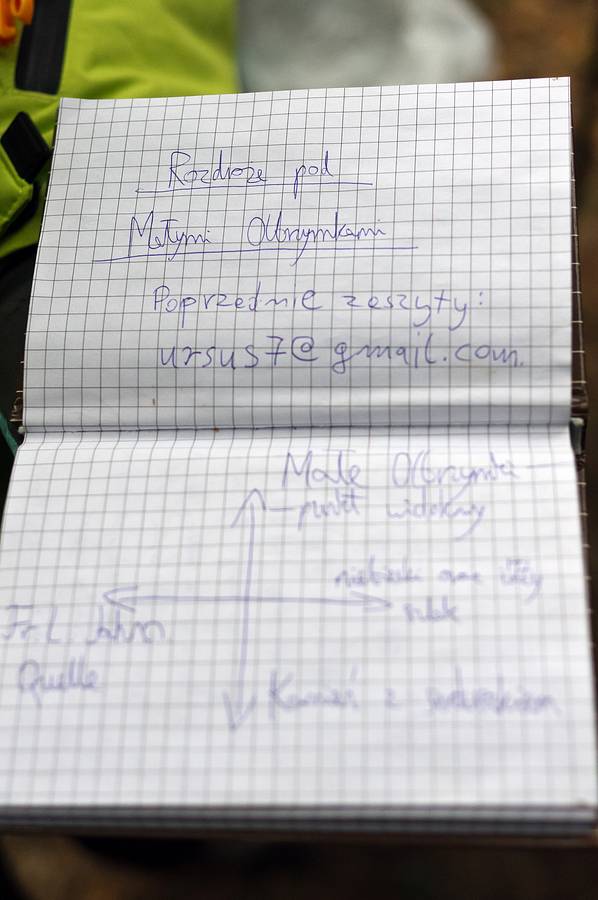 Rozdroże pod
Małymi Olbrzymkami
Poprzednie zeszyty:
ursus7@gmail.com
Małe Olbrzymki -
- punkt widokowy
niebieski oraz żółty
szlak
Fr. L. Jahn
Quelle
Kamień z